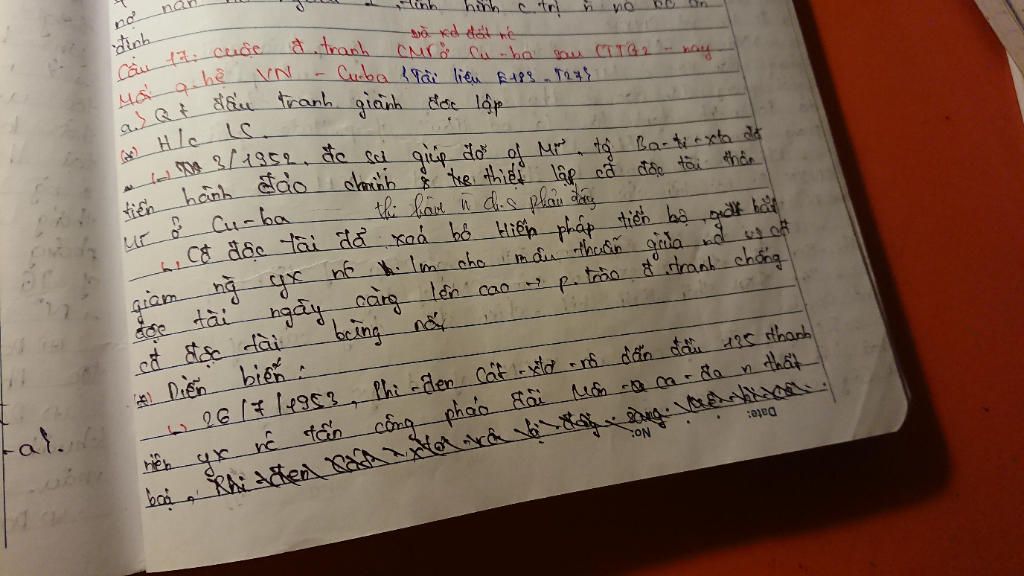 định
đã xđ đất nc
Câu 17: cuộc đ.tranh CM ở Cu-ba sau CTTG2 - nay
Mối q.hệ VN - Cuba (Tài liệu
a.) Qt đấu tranh giành độc lập
(*) H/c LS.
3/1952, đc sự giúp đỡ of Mĩ, tg Ba-ti-xta đã
tiến hành đảo chính thiết lập cđ độc tài thân
Mĩ ở Cu-ba thi hành n c/s phản động
Cđ độc tài đã xoá bỏ Hiến pháp tiến bộ, bắt
giam ng yx nc. lm cho mâu thuẫn giữa nd vs cđ
độc tài ngày càng lên cao → p.trào đ.tranh chống
cđ độc tài bùng nổ
(*) Diễn biến:
26/7/1953, Phi-đen Cát-xtơ-rô dẫn đầu 135 thanh
niên yx nc tấn công pháo đài Môn-ca-đa n thất
bại, Phi-đen
No:
Date:
-a).